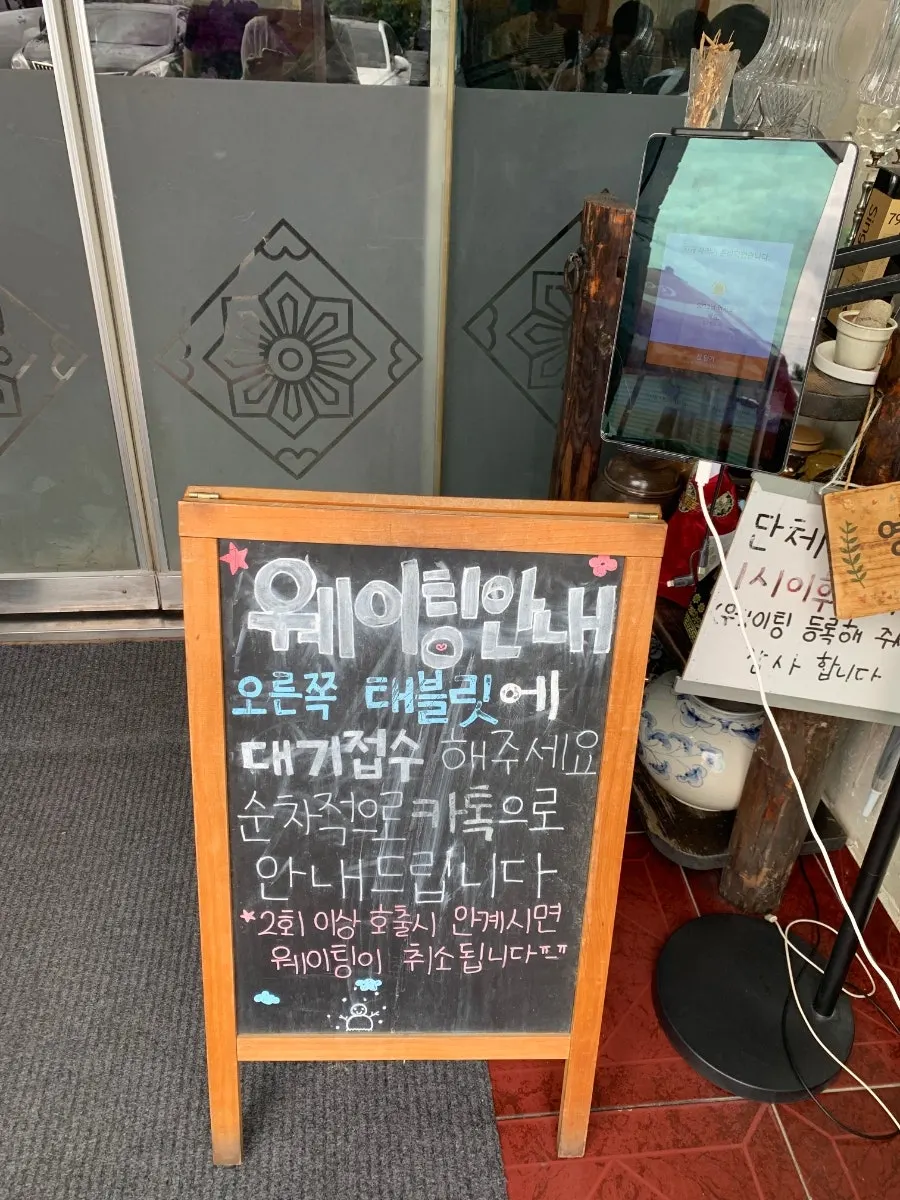 웨이팅안내
오른쪽 태블릿에
대기접수 해주세요
순차적으로 카톡으로
안내드립니다
*2회 이상 호출시 안계시면
웨이팅이 취소됩니다ㅠㅠ
단체
1시이후
(웨이팅 등록해 주세
감사 합니다
Sing
79